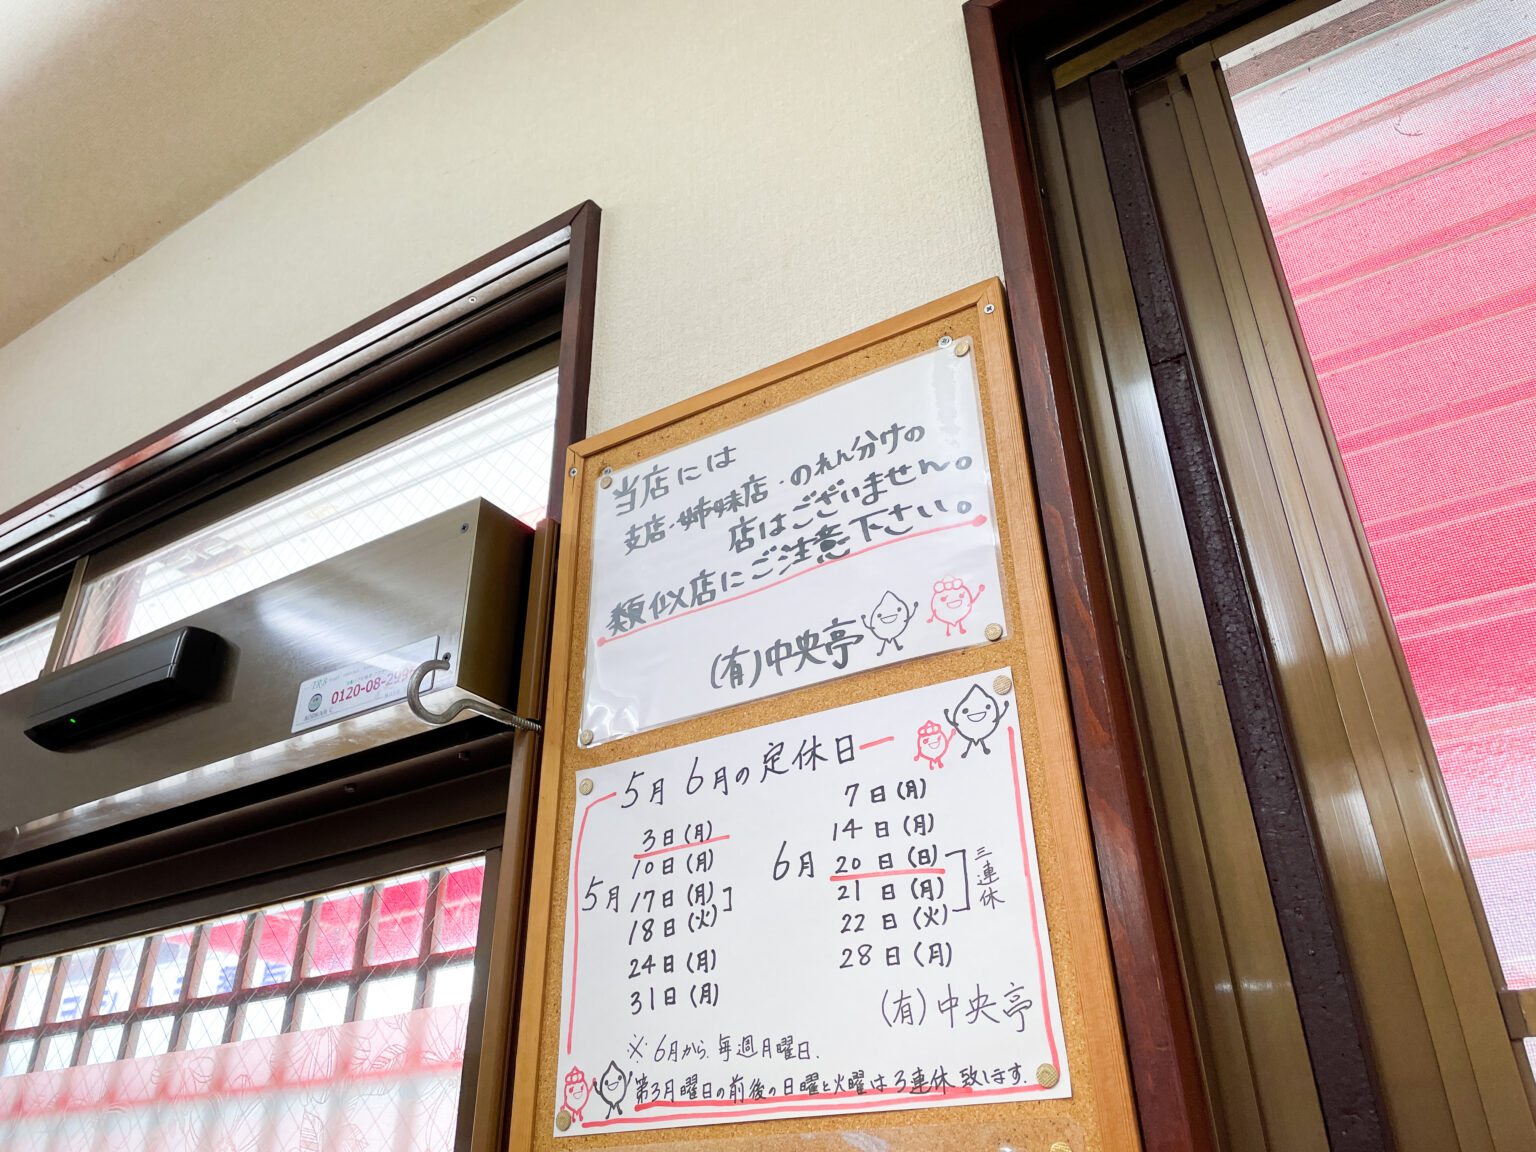 当店には
支店・姉妹店・のれん分けの
店はございません。
類似店にご注意下さい。
(有)中央亭
5月 6月の定休日
5月
3日(月)
10日(月)
17日(月)
18日(火)
24日(月)
31日(月)
6月
7日(月)
14日(月)
20日(日)
21日(月)
22日(火)
28日(月)
三連休
(有)中央亭
※6月から、毎週月曜日、
第3月曜日の前後の日曜と火曜は3連休致します.
0120-08-29